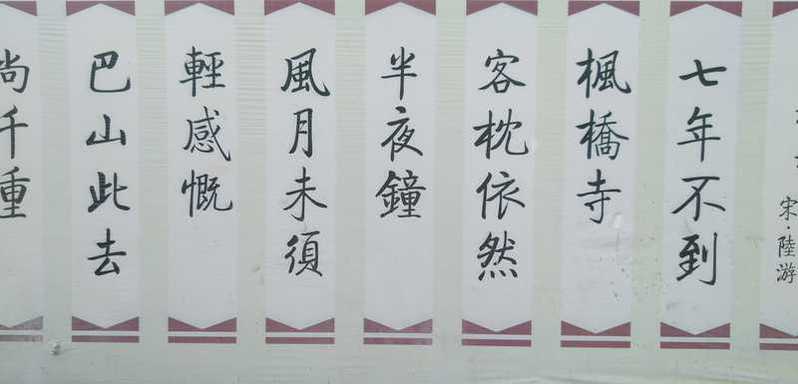 宋·陸游
七年不到
楓橋寺
客枕依然
半夜鐘
風月未須
輕感慨
巴山此去
尚千重